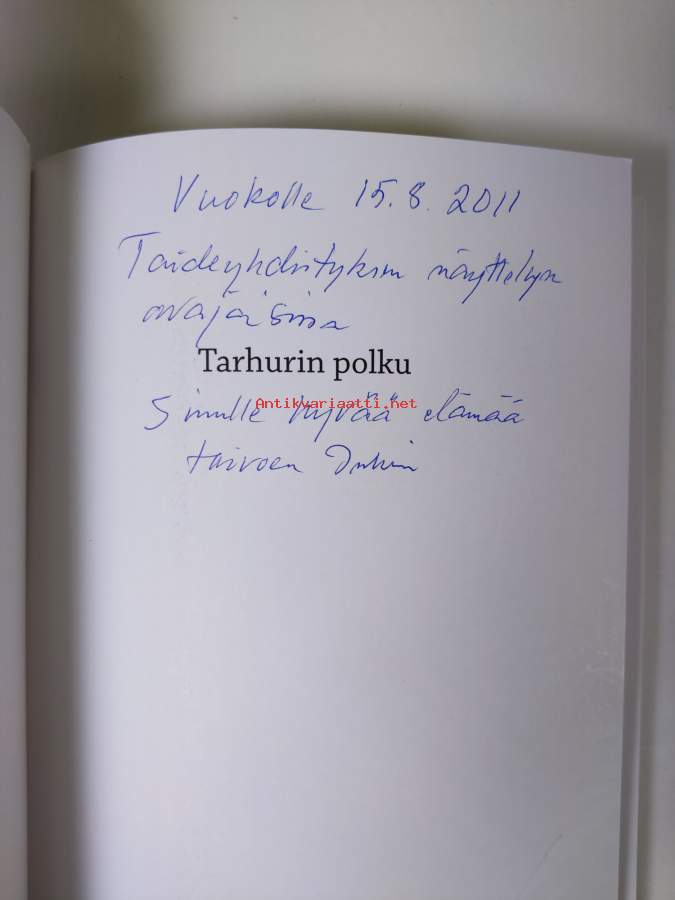 Vuokolle 15.8.2011
Taideyhdistyksen näyttelyn
avajaisissa
Tarhurin polku
Sinulle hyvää elämää
Antikvariaatti.net
toivoen